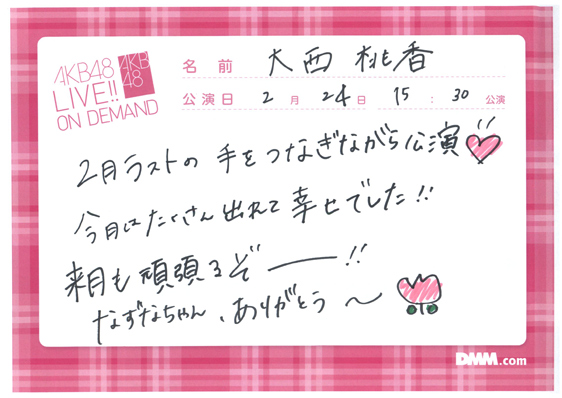 AKB48
LIVE!!
ON DEMAND
AKB
48
名前 大西桃香
公演日 2月24日 15:30公演
2月ラストの 手をつなぎながら公演
今月はたくさん出れて幸せでした!!
来月も頑張るぞー!!
なずなちゃん、ありがとう〜
DMM.com